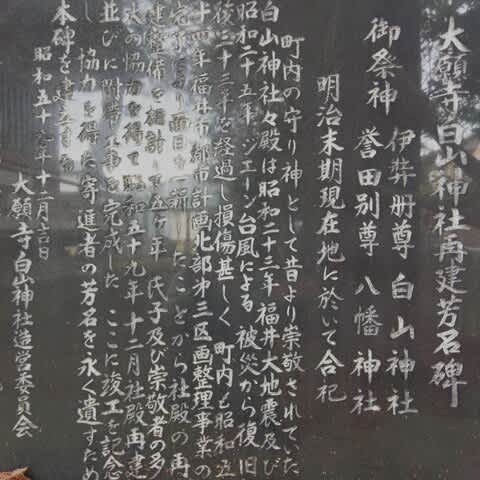 大願寺白山神社再建芳名碑
御祭神 伊弉册尊 白山神社
誉田別尊 八幡神社
明治末期現在地に於いて合祀
町内の守り神として昔より崇敬されていた
白山神社々殿は昭和二十三年福井大地震及び
昭和二十五年ジエーン台風による被災から復旧
後三十三年を経過し損傷甚しく 町内も昭和五
十四年福井市都市計画北部第三区画整理事業の
完了により面目を一新したことから社殿の再
建整備を相計って五ヶ年 氏子及び崇敬者の多
大の協力を得て昭和五十九年十二月社殿再建
並びに附帯工事を完成した ここに竣工を記念
し 協力を得た寄進者の芳名を永く遺すため
本碑を建立する
昭和五十 年十二月 日
大願寺白山神社造営委員会